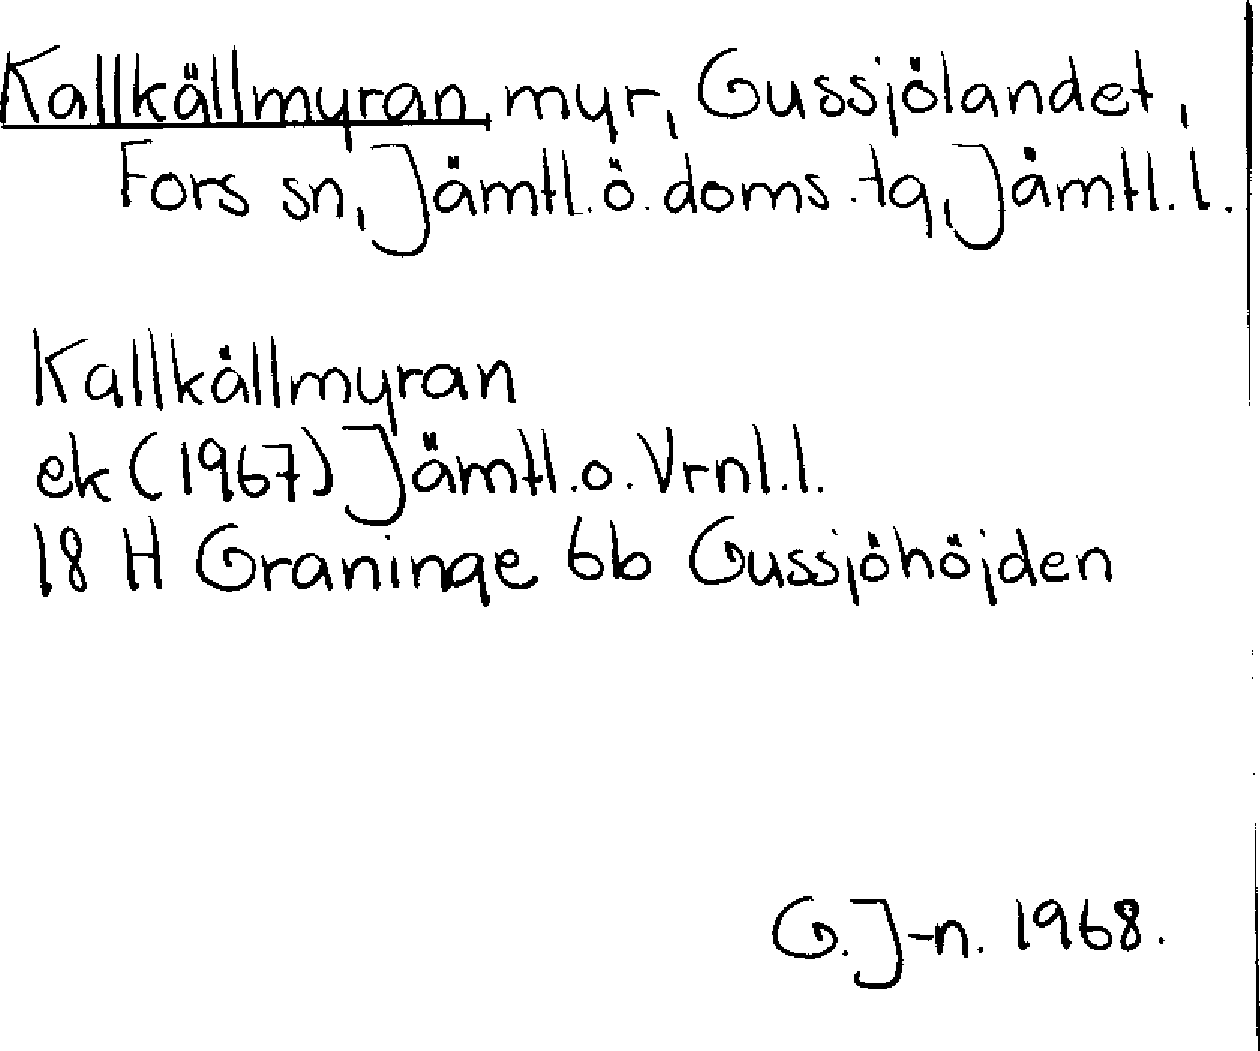 Kallkällmyran, myr, Gussjölandet,
Fors sn, Jämtl.ö.doms.tg, Jämtl.l.
Kallkällmyran
ek (1967) Jämtl.o.Vrnl.l.
18 H Graninge 6b Gussjöhöjden
G.J-n. 1968.